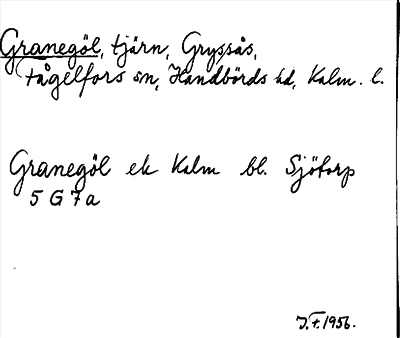 Granegöl, tjärn, Gryssås,
Fågelfors sn, Handbörds hd, Kalm. l.
Granegöl ek Kalm bl. Sjötorp
5 G 7a
J.F. 1956.